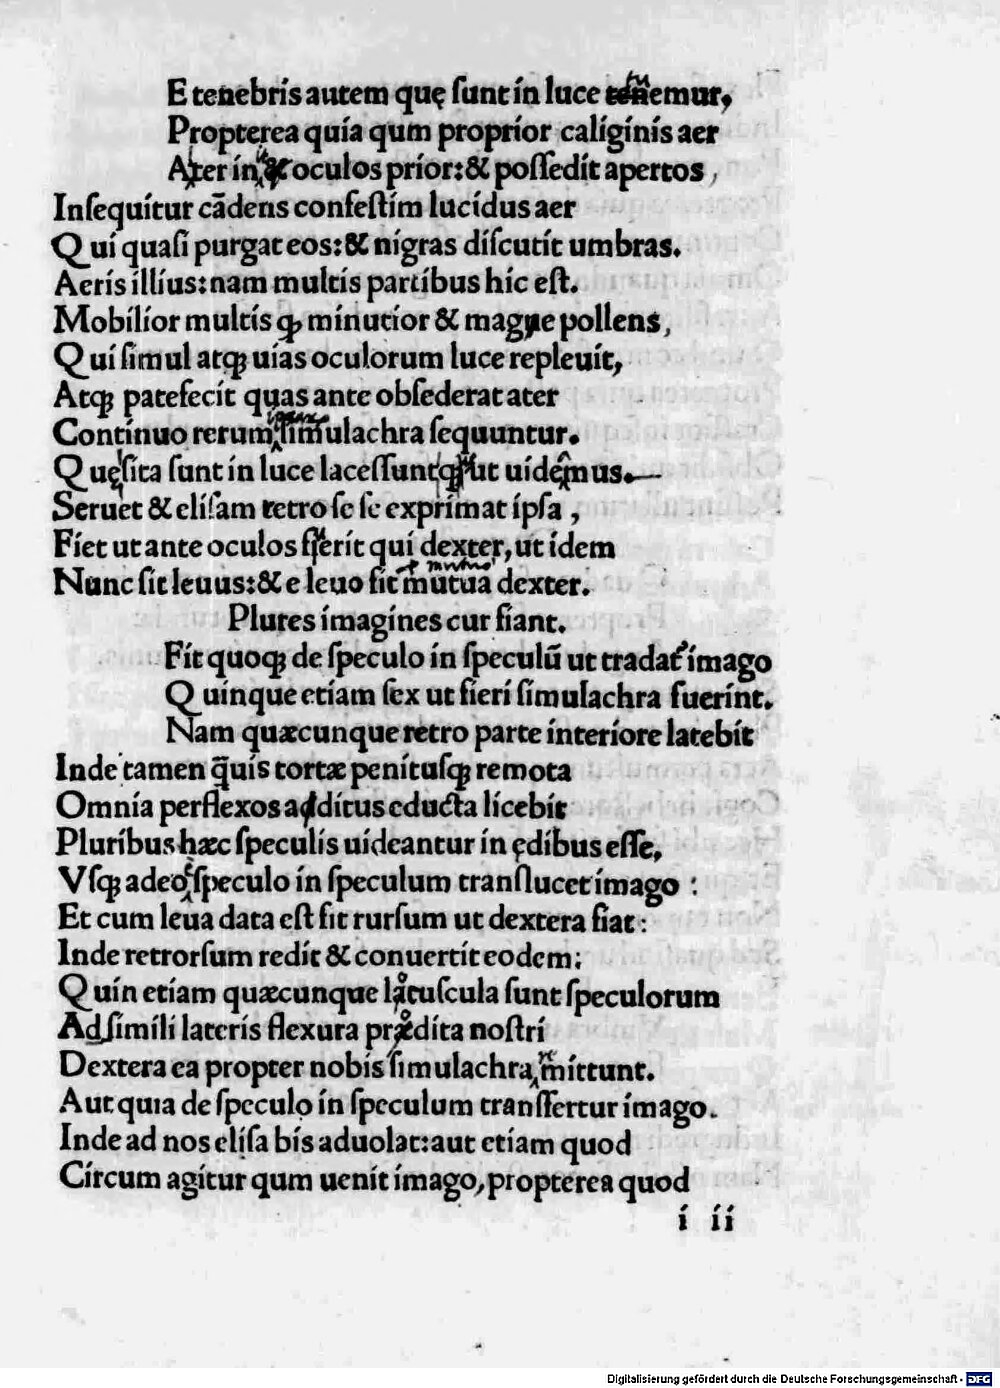 E tenebris autem quę ſunt in luce tenemur,
tu
Propterea quia qum proprior caliginis aer
Ater in & oculos prior: & poſſedit apertos,
Inſequitur cādens confeſtim lucidus aer
Qui quaſi purgat eos: & nigras diſcutit umbras.
Aeris illius: nam multis partibus hic eſt.
Mobilior multisꝗ minutior & mague pollens,
Qui ſimul atꝗ uias oculorum luce repleuit,
Atꝗ patefecit quas ante obſederat ater
Continuo rerum ſimulachra ſequuntur.
Quęſita ſunt in luce laceſſuntꝗ ut uidemus.
Seruet & eliſam retro ſe ſe exprimat ipſa,
Fiet ut ante oculos fuerit qui dexter, ut idem
Nunc ſit leuus: & e leuo ſit mutua dexter.
Plures imagines cur fiant.
Fit quoꝗ de ſpeculo in ſpeculū ut tradat imago
Quinque etiam ſex ut fieri ſimulachra fuerint.
Nam quæcunque retro parte interiore latebit
Inde tamen q̄uis tortæ penituſꝗ remota
Omnia perflexos additus educta licebit
Pluribus hæc ſpeculis uideantur in ędibus eſſe,
Vſꝗ adeo ſpeculo in ſpeculum tranſlucet imago:
Et cum leua data eſt fit rurſum ut dextera fiat:
Inde retrorſum redit & conuertit eodem:
Quin etiam quæcunque latuſcula ſunt ſpeculorum
Adſimili lateris flexura prædita noſtri
Dextera ea propter nobis ſimulachra mittunt.
Aut quia de ſpeculo in ſpeculum tranſfertur imago.
Inde ad nos eliſa bis aduolat: aut etiam quod
Circum agitur qum uenit imago, propterea quod
i ii
Digitalisierung gefördert durch die Deutsche Forschungsgemeinschaft - DFG